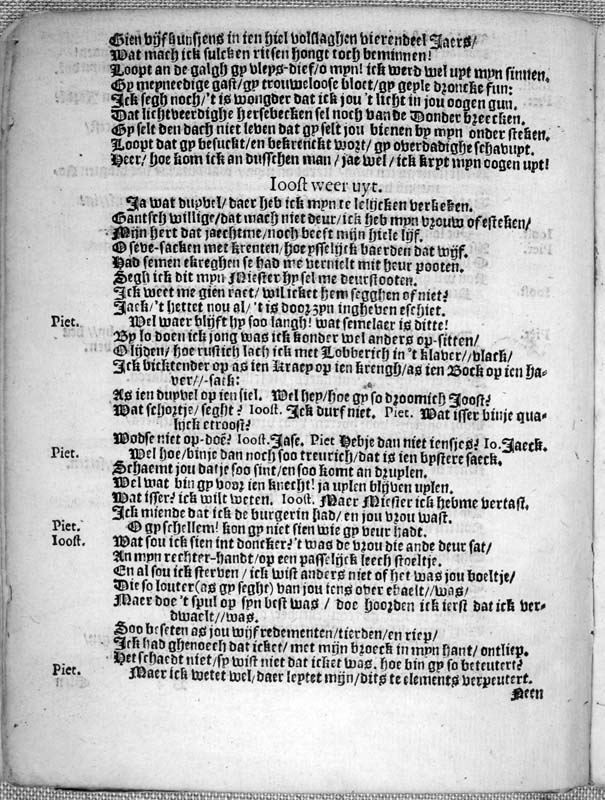 Gien vijf kunsjens in ien hiel volslaghen vierendeel Jaers/
Wat mach ick sulcken ritsen hongt toch beminnen!
Loopt an de galgh gy vleys-dief/o myn! ick werd wel uyt myn sinnen.
Gy meyneedige gast/gy trouweloose bloet/gy geyle droncke fun:
Ick segh noch/'t is wongder dat ick jou 't licht in jou oogen gun.
Dat lichtveerdighe hersebecken sel noch van de Donder breecken.
Gy selt den dach niet leven dat gy selt jou bienen by myn onder steken.
Loopt dat gy besuckt/en bekrenckt wort/gy overdadighe schavuyt.
Heer/hoe kom ick an dusschen man/jae wel/ick kryt myn oogen uyt!
Ioost weer uyt.
Ja wat duyvel/daer heb ick myn te lelijcken verkeken.
Gantsch willige/dat mach niet deur/ick heb myn vrouw ofesteken/
Mijn hert dat jaechtme/noch beeft mijn hiele lijf.
O seve-sacken met krenten/hoe ysselijck baerden dat wijf.
Had semen ekreghen se had me vernielt met heur pooten.
Segh ick dit myn Miester hy sel me deurstooten.
Ick weet me gien raet/wil icket hem segghen of niet?
Jack/'t hettet nou al/'t is door zyn ingheven eschiet.
Piet. Wel waer blijft hy soo langh! wat semelaer is ditte!
By lo doen ick jong was ick konder wel anders op-sitten/
O lijden/hoe rustich lach ick met Lobberich in 't klaver//vlack/
Ick vicktender op as ien Kraey op ien krengh/as ien Bock op ien ha-
ver//-sack:
As ien duyvel op ien siel. Wel hey/hoe gy so droomich Joost?
Wat schortje/seght? Ioost. Ick durf niet. Piet. Wat isser binje qua-
lijck etroost?
Wodse niet op-doe? Ioost. Jase. Piet Hebje dan niet iensjes? Io. Jaeck.
Piet. Wel hoe/binje dan noch soo treurich/dat is ien bystere saeck.
Schaemt jou datje soo sint/en soo komt an druylen.
Wel wat bin gy voor ien knecht! ja uylen blijven uylen.
Wat isser? ick wilt weten. Ioost. Maer Miester ick hebme vertast.
Ick miende dat ick de burgerin had/en jou vrou wast.
Piet. O gy schellem! kon gy niet sien wie gy veur hadt.
Ioost. Wat sou ick sien int doncker? 't was de vrou die ande deur sat/
An myn rechter-handt/op een passelijck leech stoeltje.
En al sou ick sterven/ick wist anders niet of het was jou boeltje/
Die so louter (as gy seght) van jou iens over ehaelt//was/
Maer doe 't spul op syn best was/doe hoorden ick ierst dat ick ver-
dwaelt//was.
Soo beseten as jou wijf redementen/tierden/en riep/
Ick had ghenoech dat icket/met mijn broeck in myn hant/ontliep.
Het schaedt niet/sy wist niet dat icket was. hoe bin gy so beteutert?
Piet. Maer ick wetet wel/daer leytet mijn/dits te elements verpeutert.
Neen